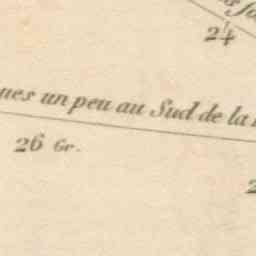 24
ues un peu au Sud de la
26 Gr.
2